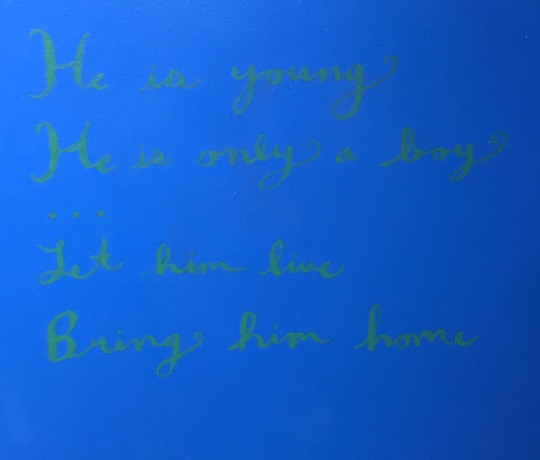 He is young
He is only a boy
...
Let him live
Bring him home